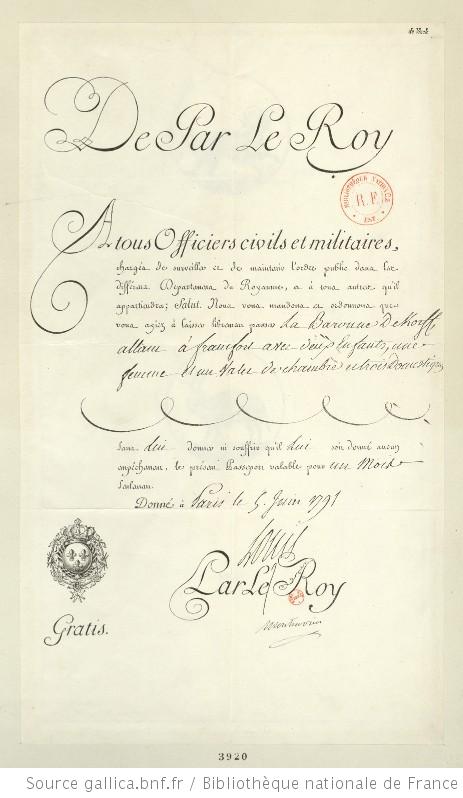 De Par Le Roy
BIBLIOTHEQUE NATIONALE
R.F.
EST.
A tous Officiers civils et militaires,
chargés de surveiller et de maintenir l'ordre public dans les
différens Départemens du Royaume, et à tous autres qu'il
appartiendra; Salut. Nous vous mandons et ordonnons que
vous ayiez à laisser librement passer La Baronne De Korff
allant à francfort avec deux Enfants, une
femme et un Valet de chambre et trois Domestiques
Sans lui donner ni souffrir qu'il lui soit donné aucun
empêchement, le présent Passeport valable pour un Mois
Seulement.
Donné à Paris le 5 Juin 1791
Louis
Par Le Roy
Montmorin
Gratis.
3920
Source gallica.bnf.fr / Bibliothèque nationale de France